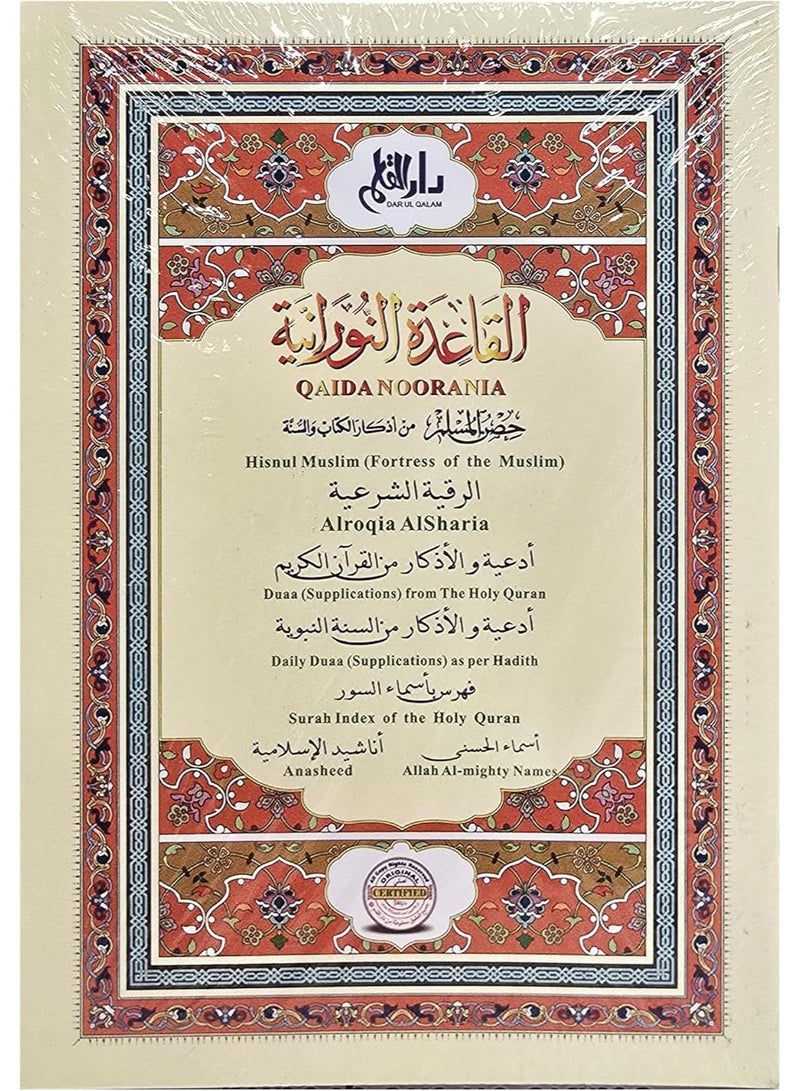 دار القلم
DAR UL QALAM
القَاعِدَة النُّورَانِيَّة
QAIDA NOORANIA
حصن المسلم من أذكار الكتاب والسُّنَّة
Hisnul Muslim (Fortress of the Muslim)
الرقية الشرعية
Alroqia AlSharia
أدعية و الأذكار من القرآن الكريم
Duaa (Supplications) from The Holy Quran
أدعية و الأذكار من السنة النبوية
Daily Duaa (Supplications) as per Hadith
فهرس بأسماء السور
Surah Index of the Holy Quran
أسماء الحسنى أناشيد الإسلامية
Anasheed Allah Al-mighty Names
All Copy Rights Reserved
ORIGINAL
CERTIFIED